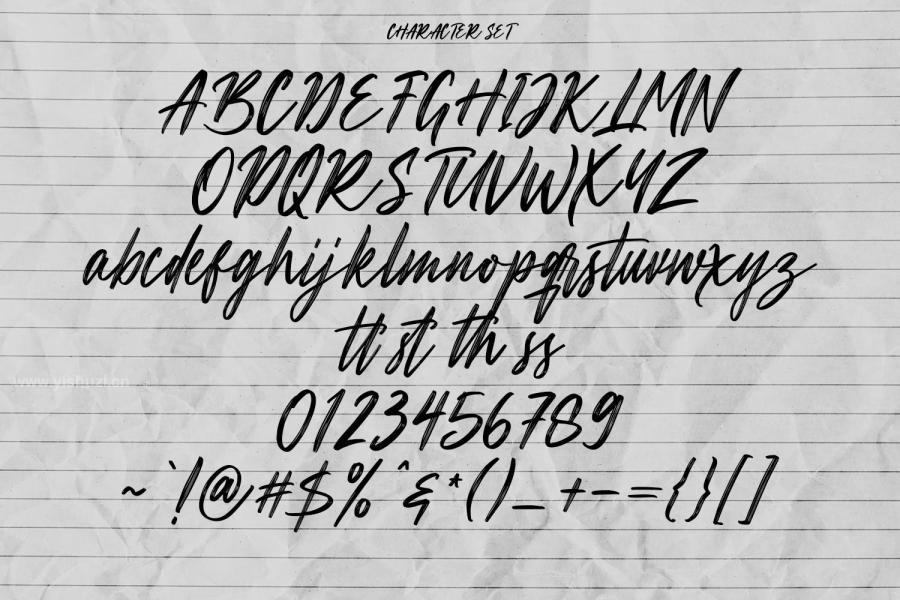 CHARACTER SET
ABCDEFGHIJKLMN
OPQRSTUVWXYZ
abcdefghijklmnopqrstuvwxyz
tt st th ss
0123456789
~`!@#$%^&*()_+-={}[]
www.yishuzi.cn